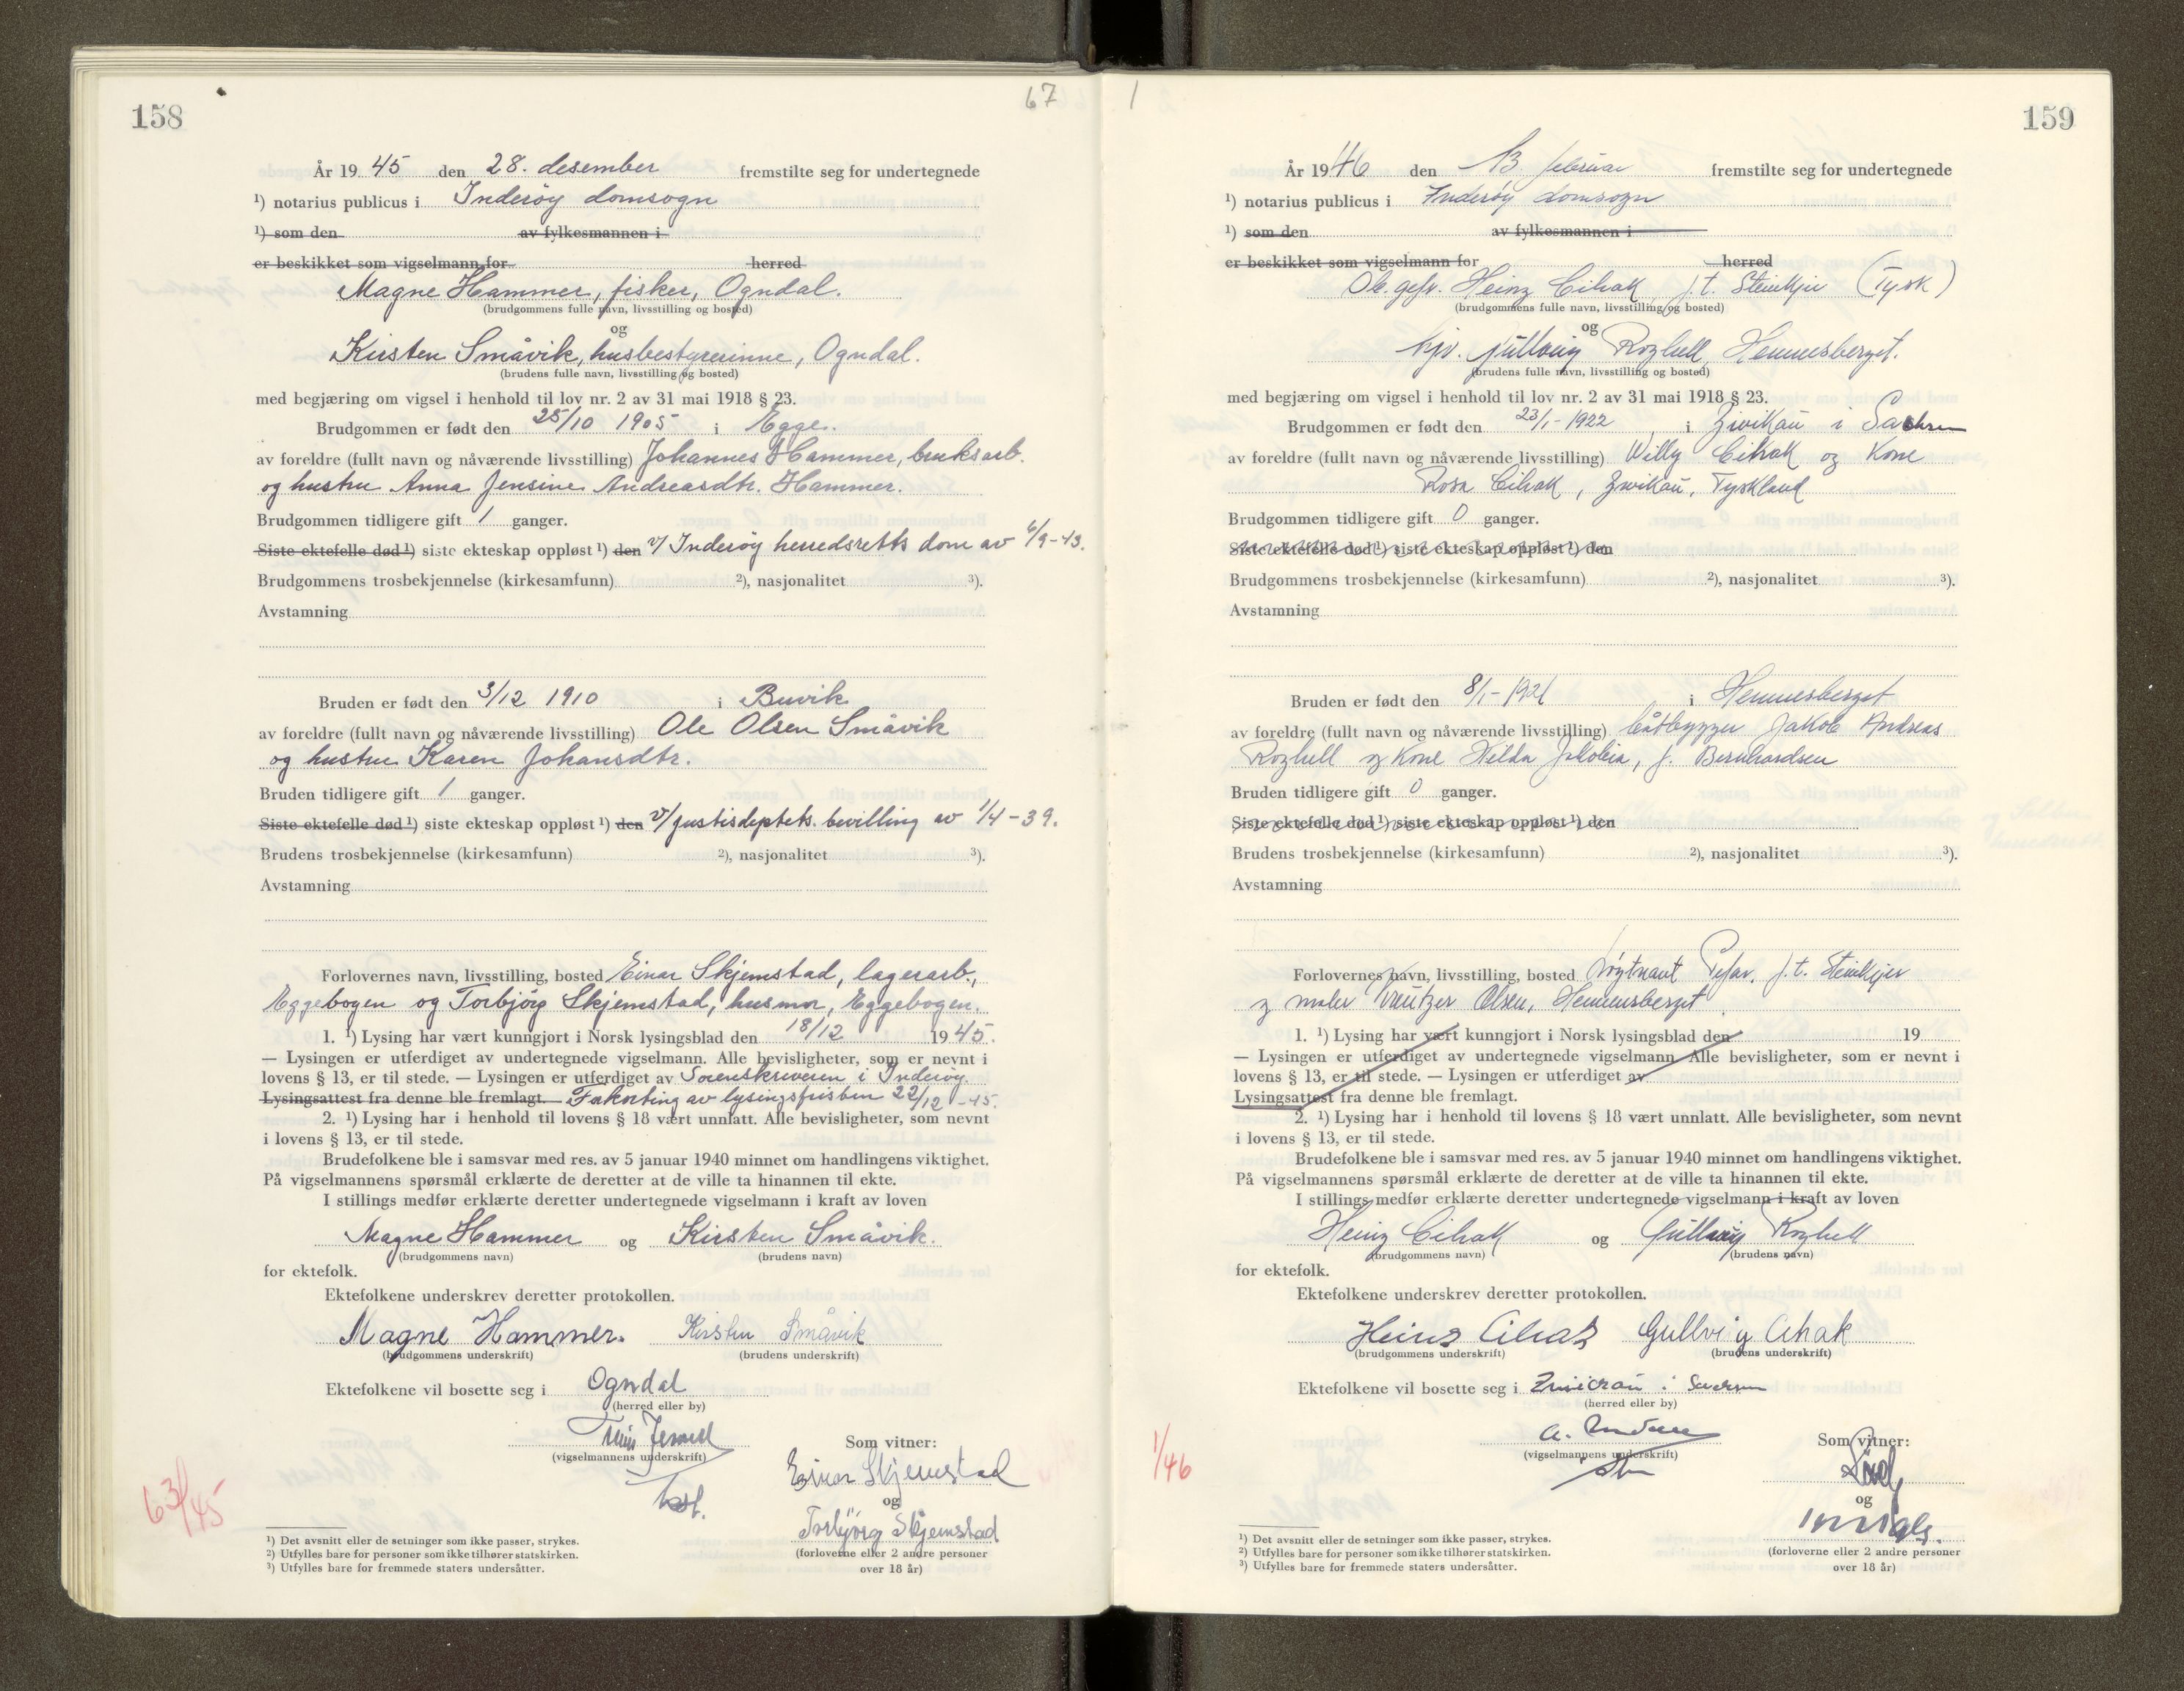 158
67
År 1945 den 28. desember fremstilte seg for undertegnede
¹) notarius publicus i Inderøy domsogn
¹) som den av fylkesmannen i
er beskikket som vigselmann for herred
Magne Hammer, fisker, Ogndal.
(brudgommens fulle navn, livsstilling og bosted)
og
Kirsten Småvik, husbestyrerinne, Ogndal.
(brudens fulle navn, livsstilling og bosted)
med begjæring om vigsel i henhold til lov nr. 2 av 31 mai 1918 § 23.
Brudgommen er født den 25/10 1905 i Egge.
av foreldre (fullt navn og nåværende livsstilling) Johannes Hammer, bruksarb.
og hustru Anna Jensine Andreasdtr. Hammer.
Brudgommen tidligere gift 1 ganger.
Siste ektefelle død ¹) siste ekteskap oppløst ¹) den v/ Inderøy herredsretts dom av 6/9-43.
Brudgommens trosbekjennelse (kirkesamfunn) ²), nasjonalitet ³).
Avstamning
Bruden er født den 3/12 1910 i Buvik
av foreldre (fullt navn og nåværende livsstilling) Ole Olsen Småvik
og hustru Karen Johansdtr.
Bruden tidligere gift 1 ganger.
Siste ektefelle død ¹) siste ekteskap oppløst ¹) den v/ justisdeptets. bevilling av 1/4-39.
Brudens trosbekjennelse (kirkesamfunn) ²), nasjonalitet ³).
Avstamning
Forlovernes navn, livsstilling, bosted Einar Skjemstad, lagerarb.,
Eggebogen og Torbjørg Skjemstad, husmor, Eggebogen.
1. ¹) Lysing har vært kunngjort i Norsk lysingsblad den 18/12 1945.
— Lysingen er utferdiget av undertegnede vigselmann. Alle bevisligheter, som er nevnt i
lovens § 13, er til stede. — Lysingen er utferdiget av Sorenskriveren i Inderøy.
Lysingsattest fra denne ble fremlagt. — Forkorting av lysingsfristen 22/12-45.
2. ¹) Lysing har i henhold til lovens § 18 vært unnlatt. Alle bevisligheter, som nevnt
i lovens § 13, er til stede.
Brudefolkene ble i samsvar med res. av 5 januar 1940 minnet om handlingens viktighet.
På vigselmannens spørsmål erklærte de deretter at de ville ta hinannen til ekte.
I stillings medfør erklærte deretter undertegnede vigselmann i kraft av loven
Magne Hammer og Kirsten Småvik.
(brudgommens navn) (brudens navn)
for ektefolk.
Ektefolkene underskrev deretter protokollen.
Magne Hammer. Kirsten Småvik
(brudgommens underskrift) (brudens underskrift)
Ektefolkene vil bosette seg i Ogndal
(herred eller by)
(vigselmannens underskrift)
Som vitner:
Einar Skjemstad
og
Torbjörg Skjemstad
(forloverne eller 2 andre personer
over 18 år)
63/45
¹) Det avsnitt eller de setninger som ikke passer, strykes.
²) Utfylles bare for personer som ikke tilhører statskirken.
³) Utfylles bare for fremmede staters undersåtter.
1
159
År 1946 den 13. februar fremstilte seg for undertegnede
¹) notarius publicus i Inderøy domsogn
¹) som den av fylkesmannen i
er beskikket som vigselmann for herred
Ob. gefr. Heinz Cihak, f.t. Steinkjer (Tysk)
(brudgommens fulle navn, livsstilling og bosted)
og
Gullvig Rozhell, Hemnesberget.
(brudens fulle navn, livsstilling og bosted)
med begjæring om vigsel i henhold til lov nr. 2 av 31 mai 1918 § 23.
Brudgommen er født den 23/1-1922 i Zwikau i Sachsen
av foreldre (fullt navn og nåværende livsstilling) Willy Cihak og kone
Rosa Cihak, Zwikau, Tyskland
Brudgommen tidligere gift 0 ganger.
Siste ektefelle død ¹) siste ekteskap oppløst ¹) den
Brudgommens trosbekjennelse (kirkesamfunn) ²), nasjonalitet ³).
Avstamning
Bruden er født den 8/1-1921 i Hemnesberget
av foreldre (fullt navn og nåværende livsstilling) båtbygger Jakob Andreas
Rozhell og kone Hilda Jakobia, f. Bernhardsen
Bruden tidligere gift 0 ganger.
Siste ektefelle død ¹) siste ekteskap oppløst ¹) den
Brudens trosbekjennelse (kirkesamfunn) ²), nasjonalitet ³).
Avstamning
Forlovernes navn, livsstilling, bosted Løytnant f.t. Steinkjer
og maler Olsen, Hemnesberget.
1. ¹) Lysing har vært kunngjort i Norsk lysingsblad den 19
— Lysingen er utferdiget av undertegnede vigselmann. Alle bevisligheter, som er nevnt i
lovens § 13, er til stede. — Lysingen er utferdiget av
Lysingsattest fra denne ble fremlagt.
2. ¹) Lysing har i henhold til lovens § 18 vært unnlatt. Alle bevisligheter, som nevnt
i lovens § 13, er til stede.
Brudefolkene ble i samsvar med res. av 5 januar 1940 minnet om handlingens viktighet.
På vigselmannens spørsmål erklærte de deretter at de ville ta hinannen til ekte.
I stillings medfør erklærte deretter undertegnede vigselmann i kraft av loven
Heinz Cihak og Gullvig Rozhell
(brudgommens navn) (brudens navn)
for ektefolk.
Ektefolkene underskrev deretter protokollen.
Heinz Cihak Gullvig Cihak
(brudgommens underskrift) (brudens underskrift)
Ektefolkene vil bosette seg i
(herred eller by)
(vigselmannens underskrift)
Som vitner:
og
(forloverne eller 2 andre personer
over 18 år)
1/46
¹) Det avsnitt eller de setninger som ikke passer, strykes.
²) Utfylles bare for personer som ikke tilhører statskirken.
³) Utfylles bare for fremmede staters undersåtter.